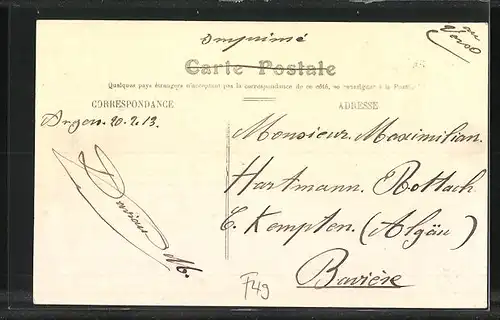 Imprimé
au
Verso
Carte Postale
Quelques pays étrangers n'acceptant pas la correspondance de ce côté, se renseigner à la Poste
CORRESPONDANCE
ADRESSE
20.2.13.
Monsieur Maximilian
Hartmann. Rottach
b. Kempten. (Algäu)
Bavière
M.
F49